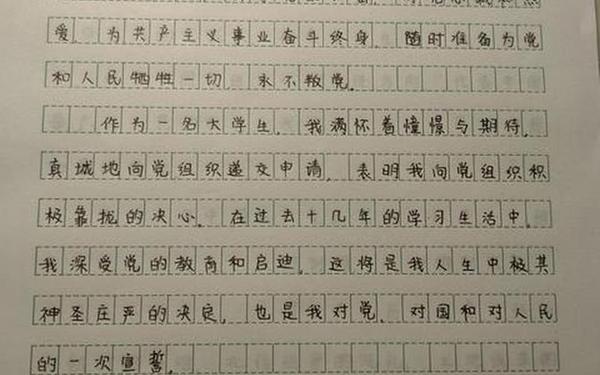 爱，为共产主义事业奋斗终身，随时准备为党
和人民牺牲一切，永不叛党。
作为一名大学生，我满怀着憧憬与期待，
真城地向党组织递交申请，表明我向党组织积
极靠拢的决心。在过去十几年的学习生活中，
我深受党的教育和启迪。这将是我人生中极其
神圣庄严的决定，也是我对党、对国和对人民
的一次宣誓。